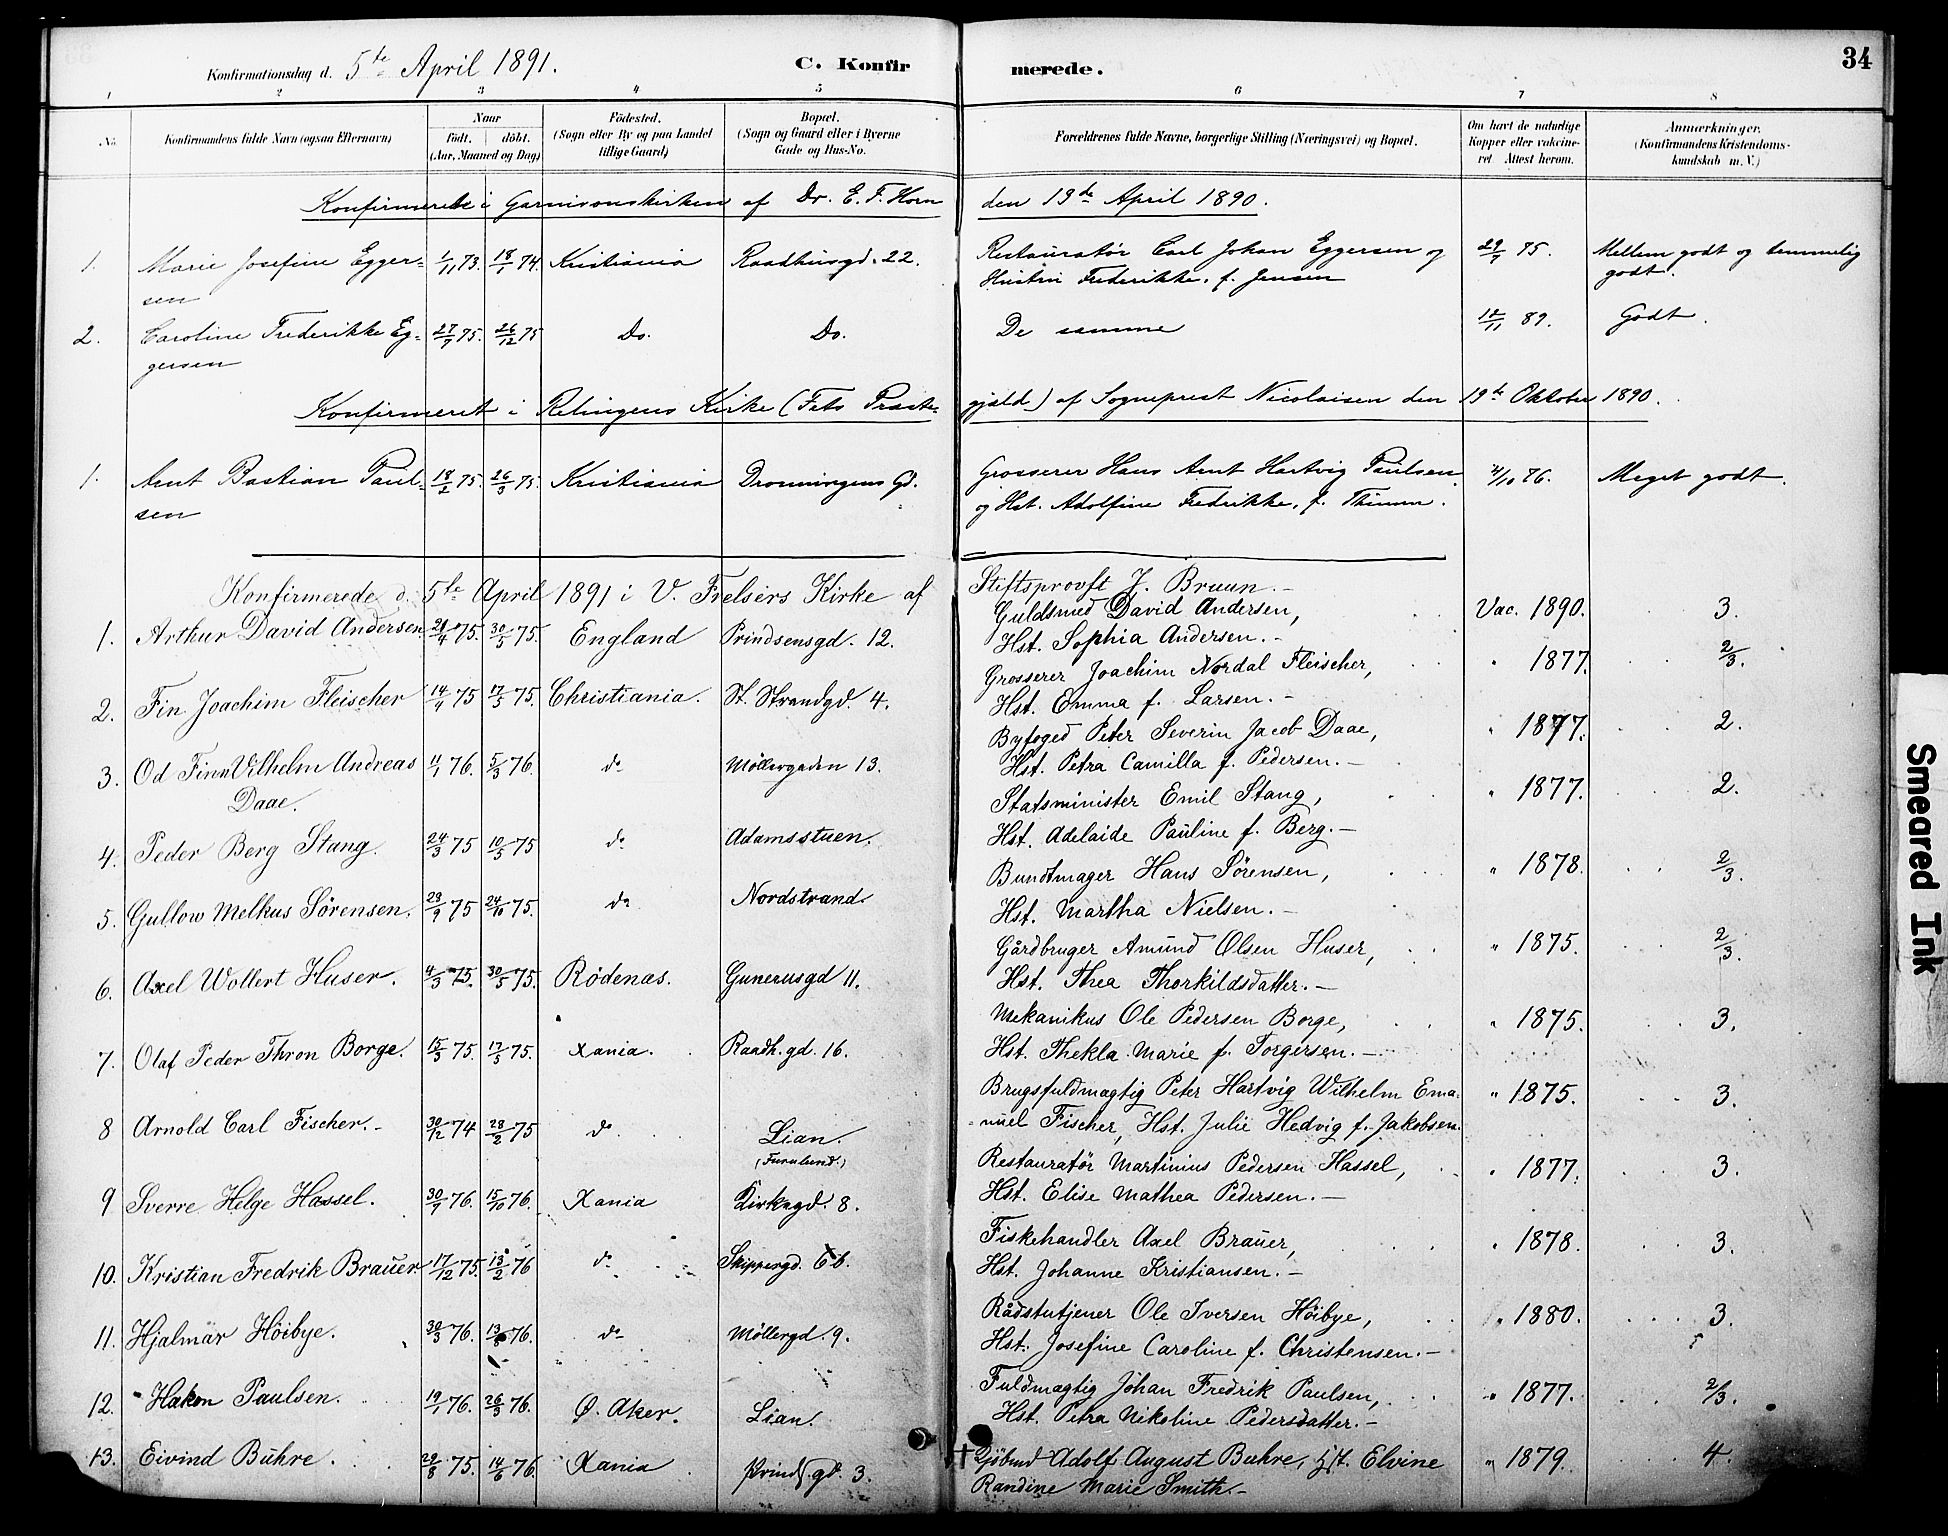 Konfirmationsdag d. 5te April 1891. C. Konfirmerede. 34
1 2 3 4 5 6 7 8
No. Konfirmandens fulde Navn (ogsaa Efternavn) Naar født. døbt. (Aar, Maaned og Dag) Fødested. (Sogn eller By og paa Landet tillige Gaard) Bopæl. (Sogn og Gaard eller i Byerne Gade og Hus-No. Forældrenes fulde Navne, borgerlige Stilling (Næringsvei) og Bopæl. Om havt de naturlige Kopper eller vakcineret. Attest herom. Anmærkninger. (Konfirmandens Kristendomskundskab m. V.)
Konfirmerede i Garnisonskirken af Dr. E. F. Horn den 19de April 1890.
1. Marie Josefine Egger= 1/11 73. 18/1 74. Kristiania Raadhusgd. 22. Restauratør Carl Johan Eggersen og 29/7 75. Mellem godt og temmelig
sen Hustru Frederikke, f. Jensen godt.
2. Caroline Frederikke Eg= 27/7 75. 26/12 75 Do. Do. De samme 12/11 89. Godt.
gersen
Konfirmeret i Relingens Kirke (Fets Præste= gjæld) af Sogneprest Nicolaisen den 19de Oktober 1890.
1. Arnt Bastian Paul= 18/2 75. 26/3 75. Kristiania Dronningens Gd. Grosserer Hans Arnt Hartvig Paulsen 4/10 76. Meget godt.
sen og Hst. Adolfine Fredrikke, f. Thimm.
Konfirmerede d. 5te April 1891 i V. Frelsers Kirke af Stiftsprovst J. Bruun.-
Guldsmed David Andersen, Vac. 1890. 3.
1. Arthur David Andersen 20/4 75. 30/5 75. England Prindsensgd. 12. Hst. Sophia Andersen.-
Grosserer Joachim Nordal Fleischer, " 1877. 2/3.
2. Fin Joachim Fleischer 14/4 75 17/5 75. Christiania. St. Strandgd. 4. Hst. Emma f. Larsen.-
Byfoged Peter Severin Jacob Daae, " 1877. 2.
3. Od Finn Vilhelm Andreas 11/1 76. 5/3 76. do Møllergaden 13. Hst. Petra Camilla f. Pedersen.-
Daae. Statsminister Emil Stang, " 1877. 2.
4. Peder Berg Stang. 24/3 75 10/5 75 do Adamsstuen. Hst. Adelaide Pauline f. Berg.-
Bundtmager Hans Sørensen, " 1878. 2/3.
5. Gullow Melkus Sørensen. 23/9 75 24/10 75. do Nordstrand. Hst. Martha Nielsen.-
Gårdbruger Amund Olsen Huser, " 1875. 2/3.
6. Axel Wollert Huser. 4/3 75. 30/5 75. Rödenas. Gunerusgd 11. Hst. Thea Thorkildsdatter.-
Mekanikus Ole Pedersen Borge, " 1875. 3.
7. Olaf Peder Thron Borge. 15/3 75. 17/5 75. Xania. Raadh.gd. 16. Hst. Thekla Marie f. Torgersen.-
Brugsfuldmægtig Peter Hartvig Wilhelm Ema- " 1875. 3.
8 Arnold Carl Fischer.- 30/12 74 28/2 75 do Lian. -nuel Fischer, Hst. Julie Hedvig f. Jakobsen.
(Furulund.) Restauratør Martinius Pedersen Hassel, " 1877. 3.
9 Sverre Helge Hassel. 30/7 76. 15/10 76. Xania Kirkegd. 8. Hst. Elise Mathea Pedersen.-
Fiskehandler Axel Brauer, " 1878. 3.
10. Kristian Fredrik Brauer. 17/12 75. 13/2 76 do Skippergd. 6b. Hst. Johanne Kristiansen.-
Rådstutjener Ole Iversen Höibye, " 1880. 3.
11. Hjalmar Höibye. 30/3 76. 13/8 76. do Møllergd. 9. Hst. Josefine Caroline f. Christensen.-
Fuldmægtig Johan Fredrik Paulsen, " 1877. 2/3.
12. Hakon Paulsen. 19/1 76. 26/3 76. Ø. Aker. Lian. Hst. Petra Nikoline Pedersdatter.-
13. Eivind Buhre. 29/8 75. 14/6 76. Xania Prindsgd. 3. Adolf August Buhre, Hst. Elvine " 1879. 4.
Randine Marie Smith.-
Smeared Ink